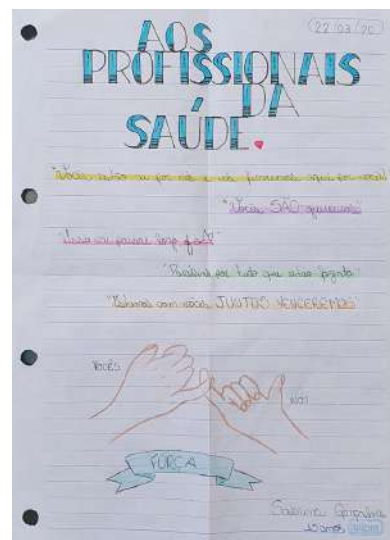 22/03/20
AOS
PROFISSIONAIS
DA
SAÚDE.
"Vocês estão aí por nós e nós ficaremos aqui por vocês"
"Vocês SÃO guerreiros"
"Isso vai passar logo, fé"
"Parabéns por tudo que estão fazendo"
"Estamos com vocês JUNTOS VENCEREMOS"
VOCÊS
NÓS
FORÇA
Sabrina
anos